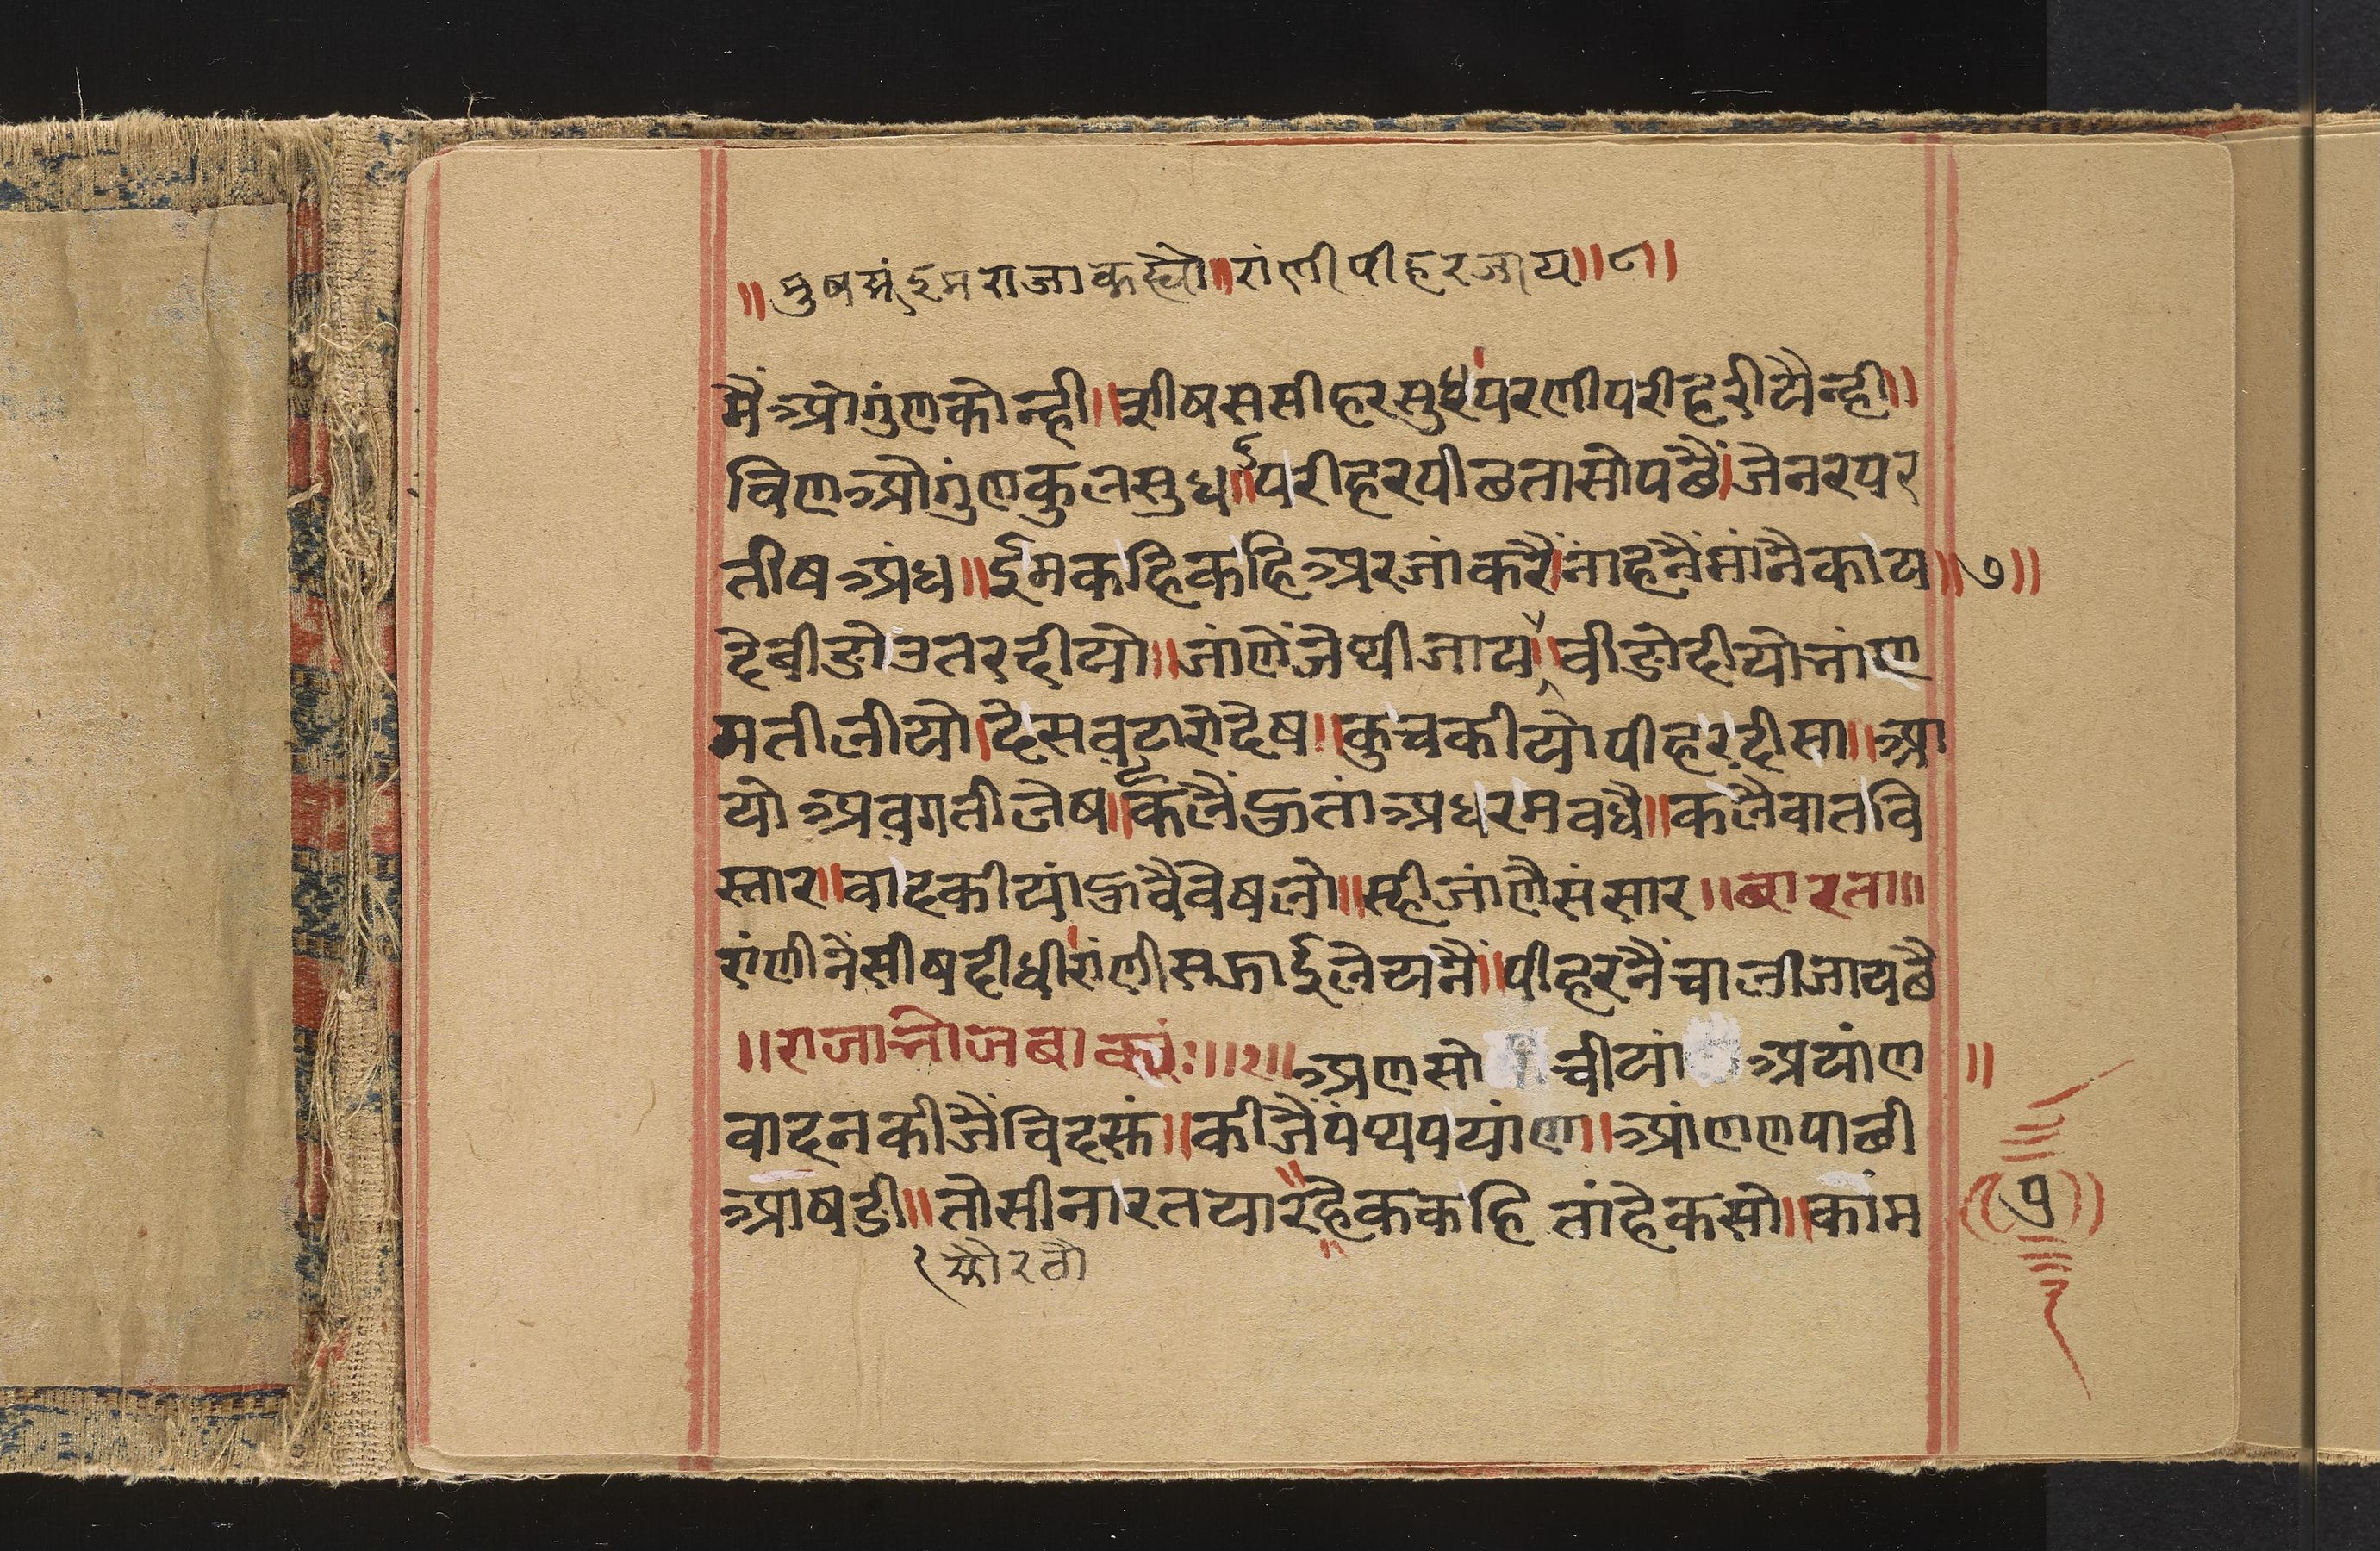 ॥ मुष सुं इम राजा कह्यो ॥ रांणी पीहर जाय ॥ ८ ॥
मैं ओगुंण को न्ही ॥ शीष स सीहर सुध । परणी परीहरी यै न्ही ॥
विण ओगुंण कुल सुध ॥ ई परीहर पीछतासो पछै । जे नर पर
तीष अंध ॥ ईम कहि कहि अरजां करै । नाहं नैं मांनै काय ॥ ७ ॥
दे बीडो उतर दीयो ॥ जांणें जेथी जाय ॥ वीडो दीयो नांण
मतीजीयो । देसवटारो देष ॥ कुच कीयो पीहर दीसा ॥ आ
यो अवगती जेष ॥ कलैं हुतां अधरम वधै ॥ कलै वात वि
स्तार ॥ वाद कीयां हुवै वेष जो ॥ स्ही जांणै संसार ॥ वारता ॥
रांणी नें सीष दीधी । रांणी सझाई लेय नै ॥ पीहर नैं चाली जाय छै
॥ राजा नो जबाब ... ॥ २ ॥ अण सो ... चीयां ... अयांण ॥
वाद न कीजैं चिहस्तं ॥ कीजैं पंथ्य पयांण । आंणण पाछी
आषडी ॥ तो सी नार तयार ॥ हेक कहि तां हेक सो ॥ कांम
और वौ
७